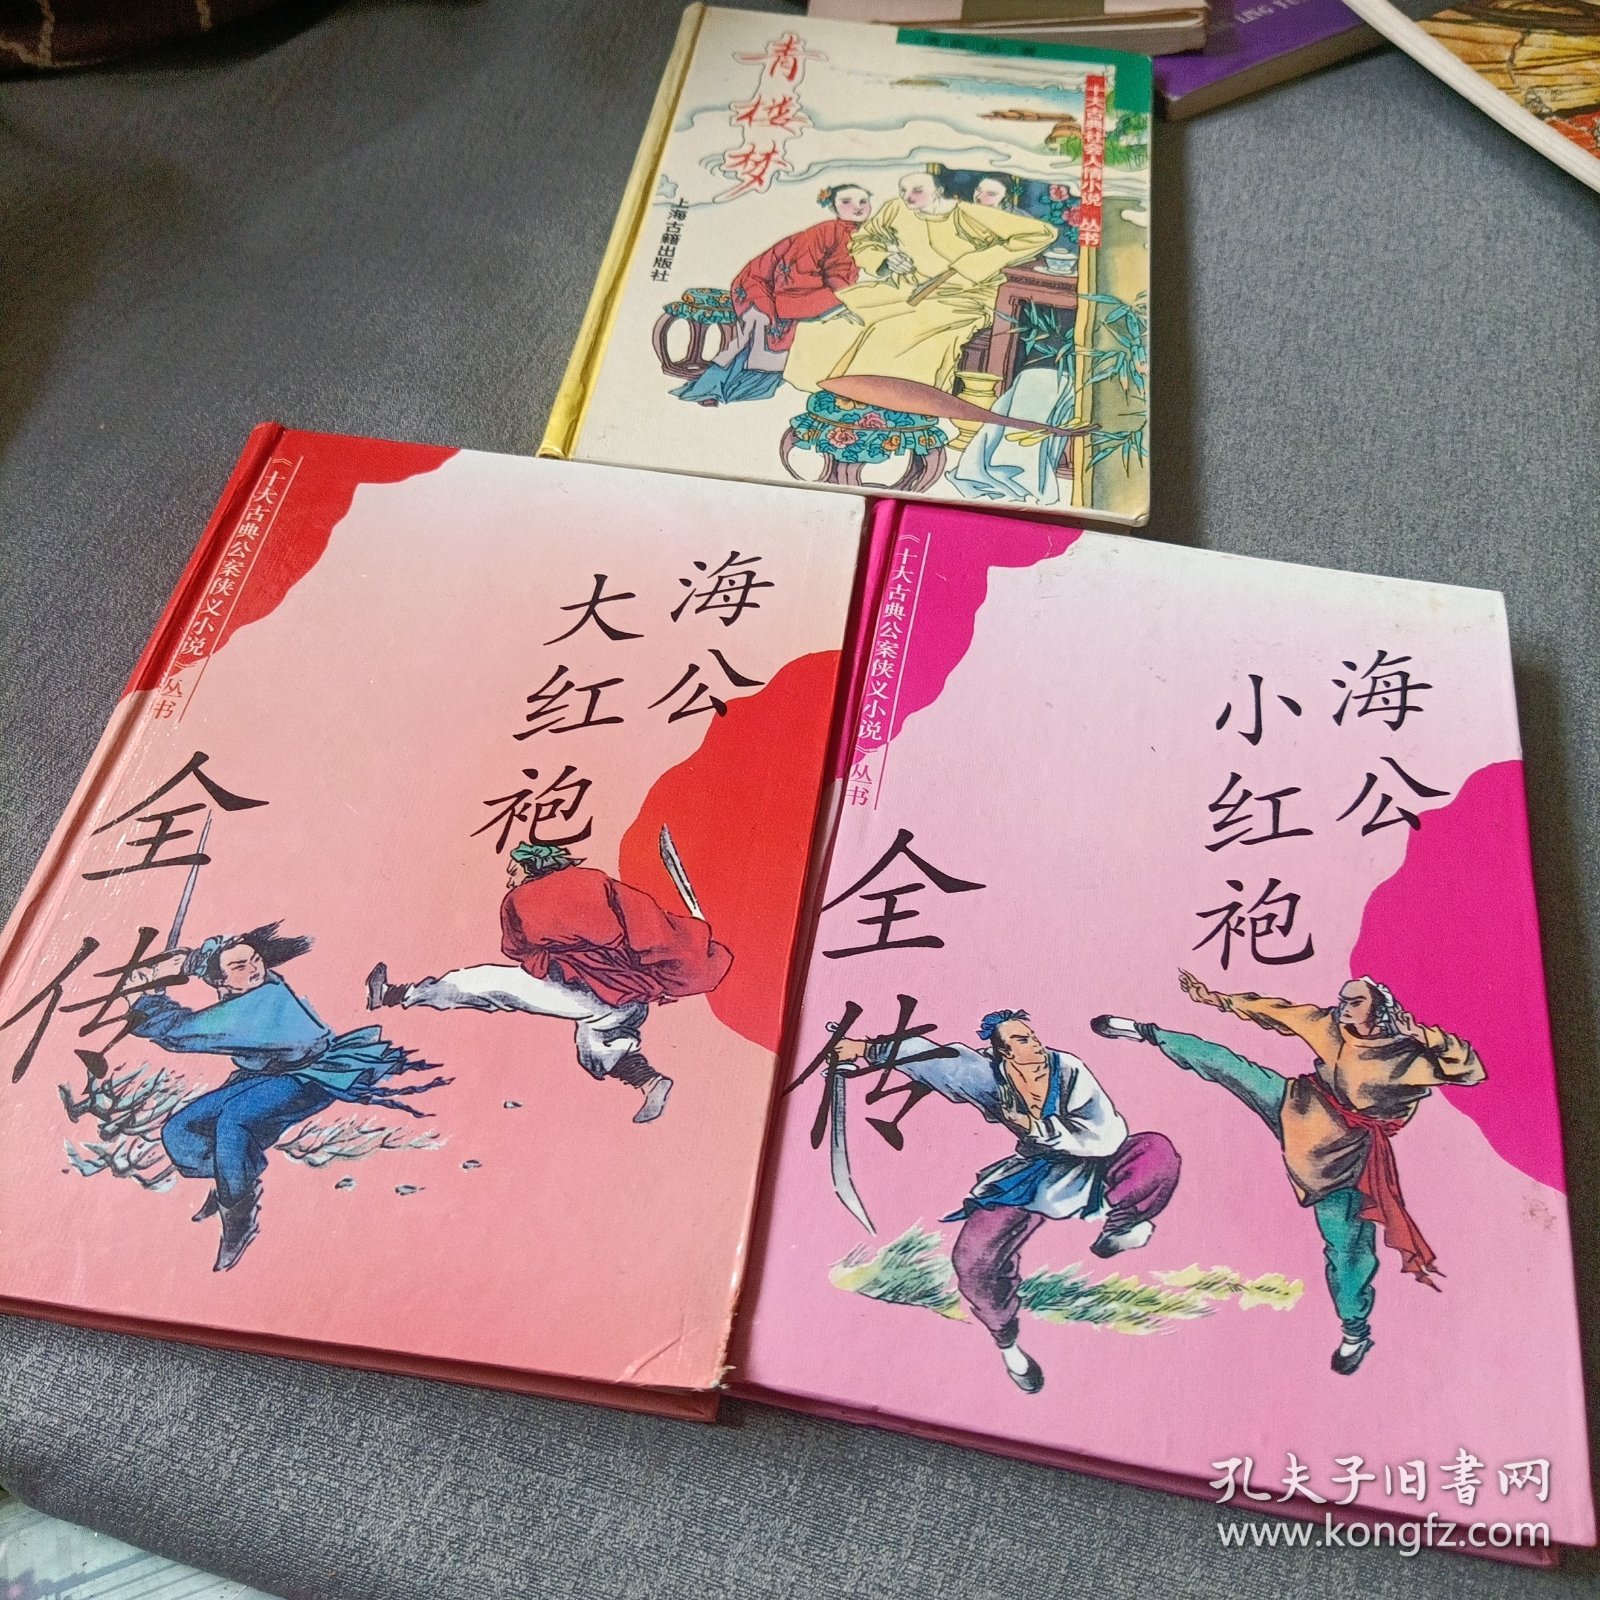 青楼梦
上海古籍出版社
十大古典社会人情小说 丛书
《十大古典公案侠义小说》丛书
海公
大红袍
全传
《十大古典公案侠义小说》丛书
海公
小红袍
全传
孔夫子旧书网
www.kongfz.com